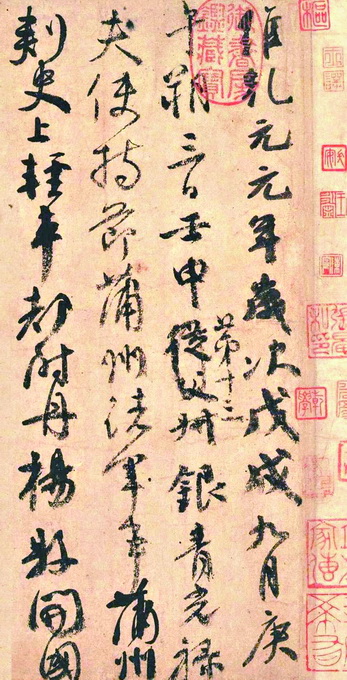 維乾元元年歲次戊戌九月庚
午朔三日壬申第十三從父叔銀青光祿
夫使持節蒲州諸軍事蒲州
刺史上輕車都尉丹楊縣開國
御書房鑑藏寶